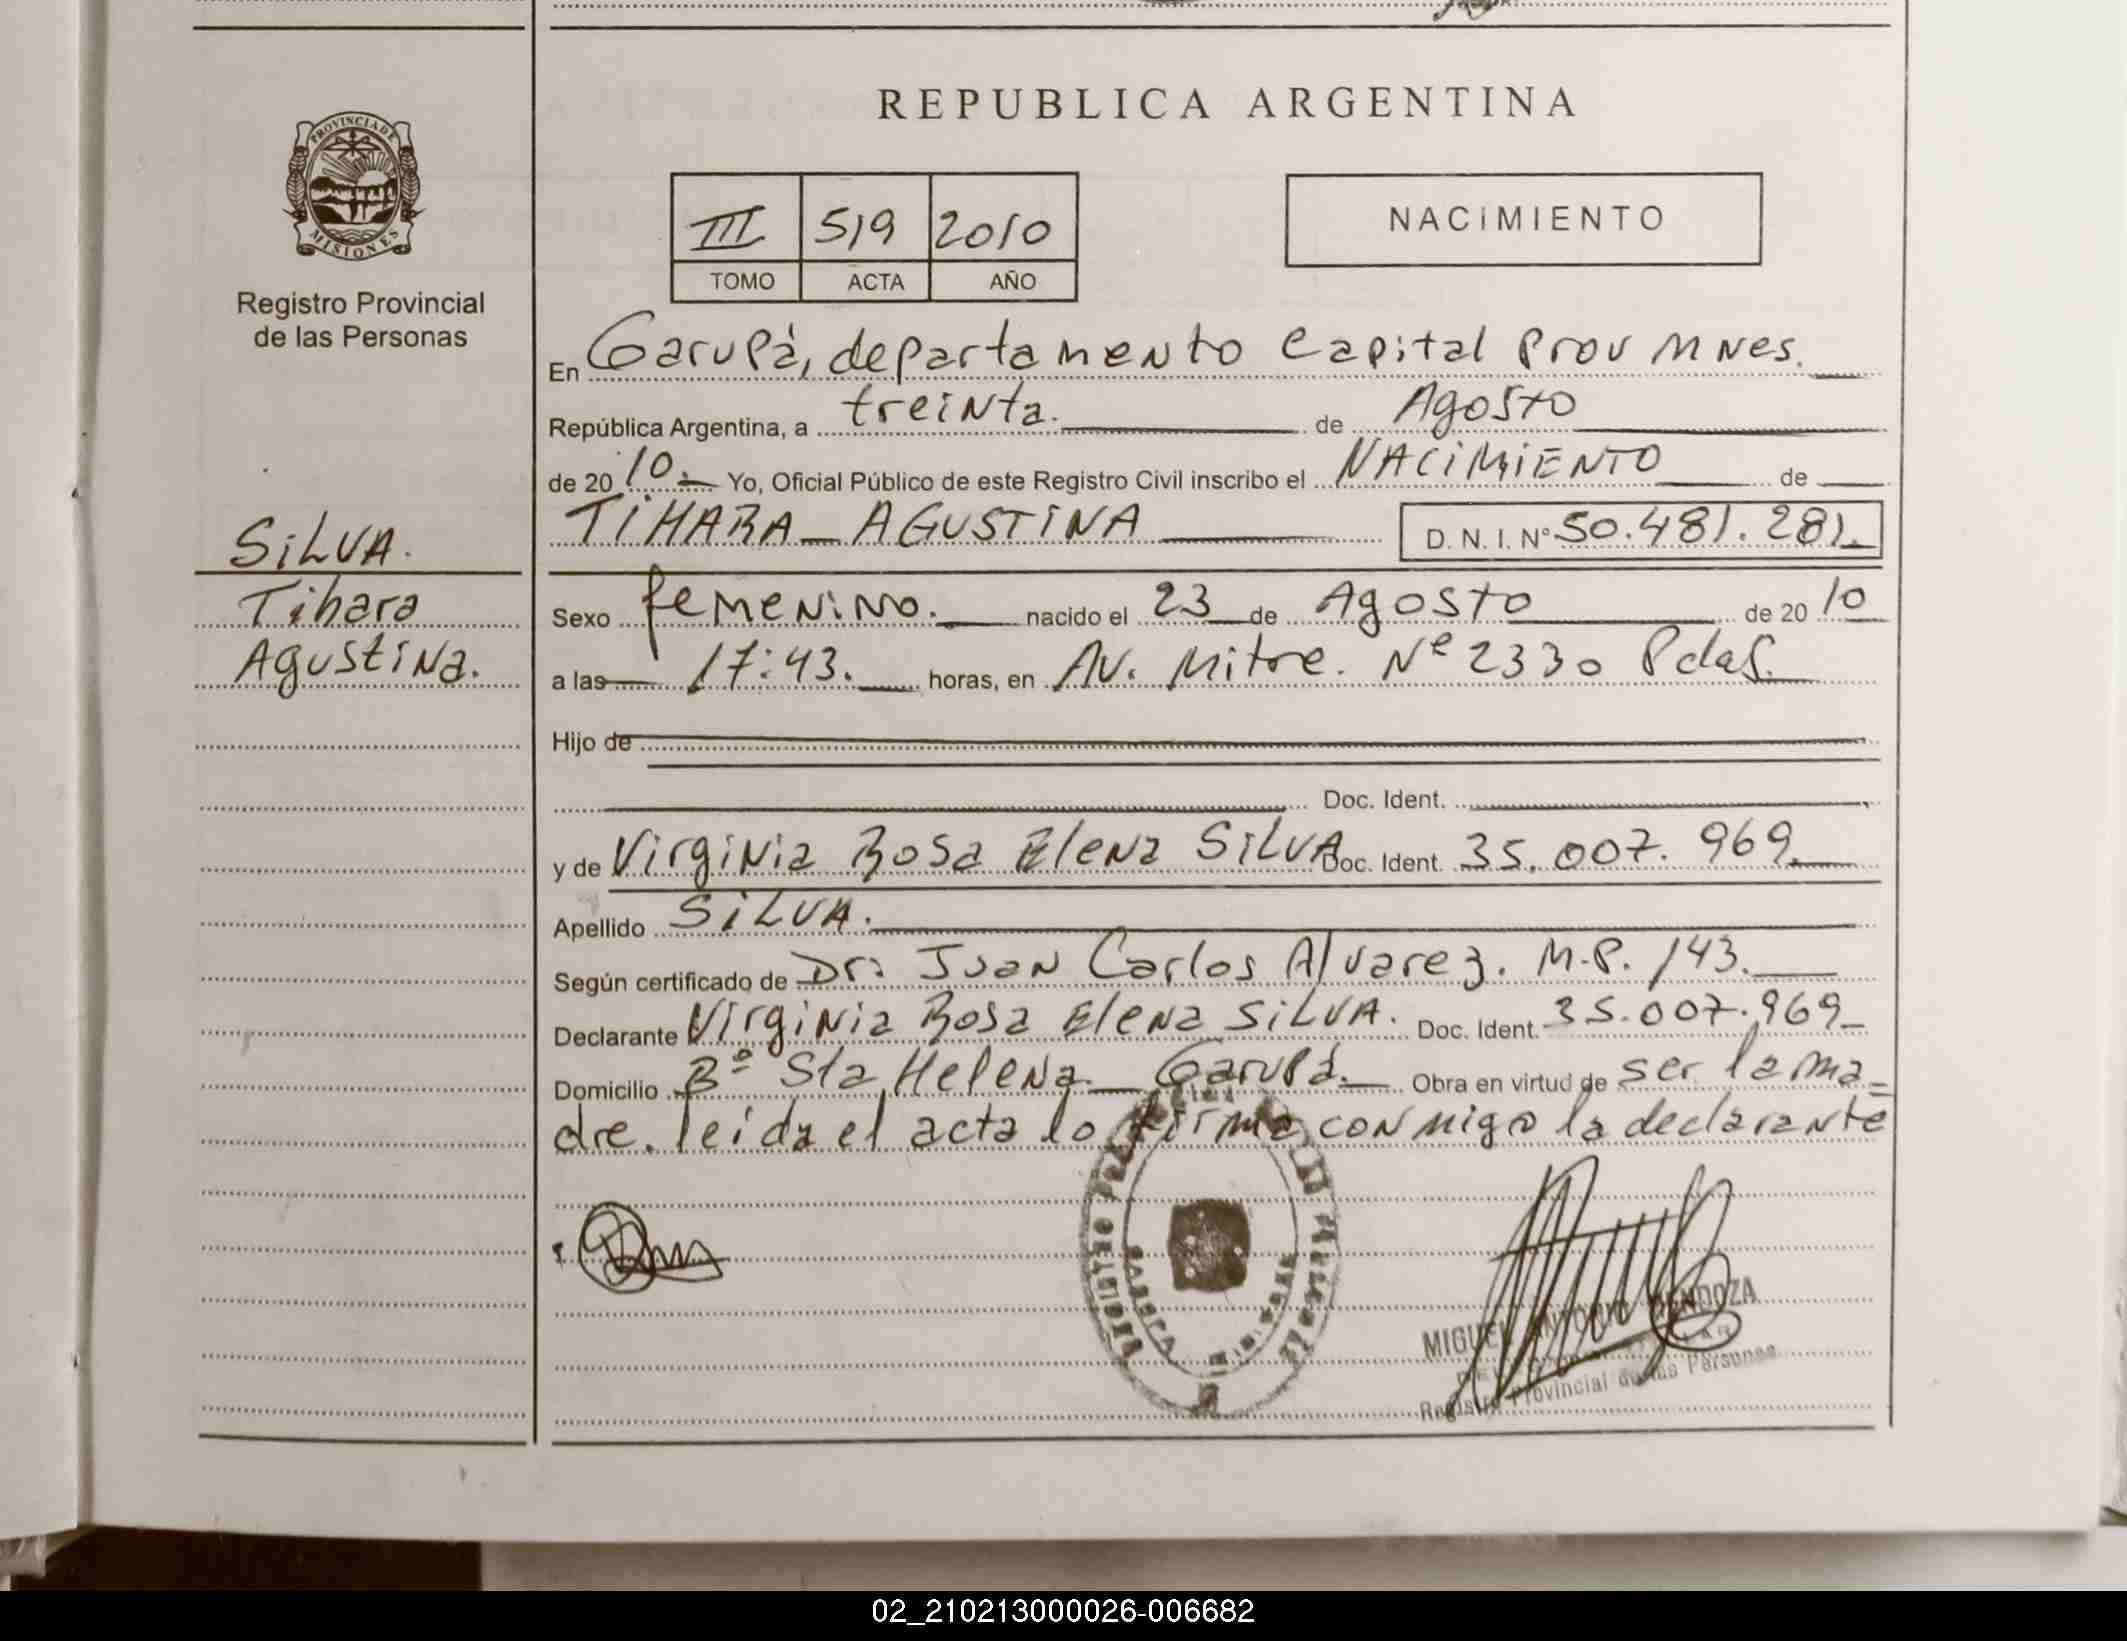 REPUBLICA ARGENTINA
PROVINCIA DE
MISIONES
Registro Provincial
de las Personas
III 519 2010
TOMO ACTA AÑO
NACIMIENTO
En Garupá, departamento Capital Prov Mnes.
República Argentina, a treinta. de Agosto
de 2010. Yo, Oficial Público de este Registro Civil inscribo el NACIMIENTO de
TIHARA AGUSTINA D. N. I. Nº 50.481.281.
SILVA.
Tihara
Agustina.
Sexo femenino. nacido el 23 de Agosto de 2010
a las 17:43. horas, en AV. Mitre. Nº 2330 Pdas.
Hijo de
Doc. Ident.
y de Virginia Rosa Elena SILVA Doc. Ident. 35.007.969.
Apellido SILVA.
Según certificado de Dr: Juan Carlos Alvarez. M.P. 143.
Declarante Virginia Rosa Elena SILVA. Doc. Ident. 35.007.969
Domicilio Bº Sta Helena. Garupá. Obra en virtud de ser la ma
dre. leida el acta lo firma conmigo la declarante
MIGUEL ANTONIO MENDOZA
Registro Provincial de las Personas
02_210213000026-006682